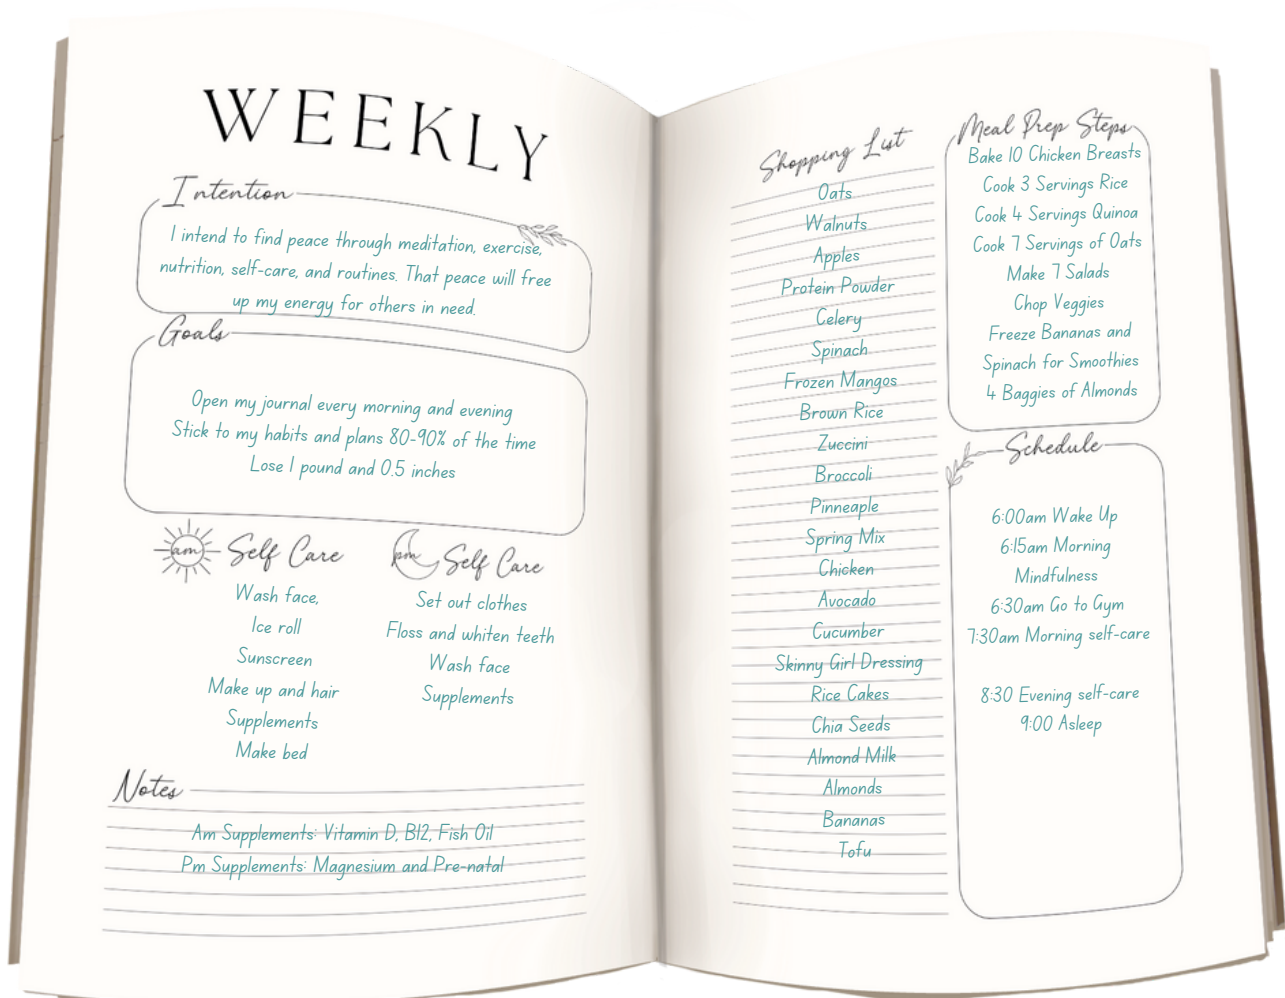 WEEKLY
Intention
I intend to find peace through meditation, exercise,
nutrition, self-care, and routines. That peace will free
up my energy for others in need.
Goals
Open my journal every morning and evening
Stick to my habits and plans 80-90% of the time
Lose 1 pound and 0.5 inches
am Self Care
Wash face,
Ice roll
Sunscreen
Make up and hair
Supplements
Make bed
pm Self Care
Set out clothes
Floss and whiten teeth
Wash face
Supplements
Notes
Am Supplements: Vitamin D, B12, Fish Oil
Pm Supplements: Magnesium and Pre-natal
Shopping List
Oats
Walnuts
Apples
Protein Powder
Celery
Spinach
Frozen Mangos
Brown Rice
Zuccini
Broccoli
Pinneaple
Spring Mix
Chicken
Avocado
Cucumber
Skinny Girl Dressing
Rice Cakes
Chia Seeds
Almond Milk
Almonds
Bananas
Tofu
Meal Prep Steps
Bake 10 Chicken Breasts
Cook 3 Servings Rice
Cook 4 Servings Quinoa
Cook 7 Servings of Oats
Make 7 Salads
Chop Veggies
Freeze Bananas and
Spinach for Smoothies
4 Baggies of Almonds
Schedule
6:00am Wake Up
6:15am Morning
Mindfulness
6:30am Go to Gym
7:30am Morning self-care
8:30 Evening self-care
9:00 Asleep